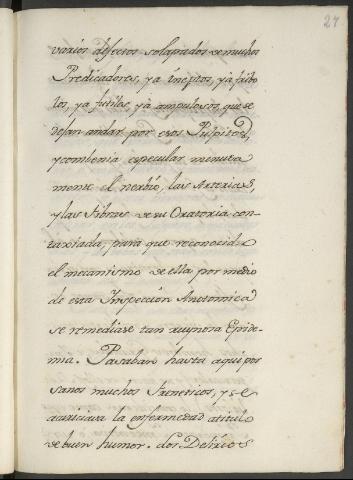 27
varios defectos solapados de muchos
Predicadores, ya ineptos, ya fribo
los, ya futiles, ya ampulosos, que se
dejan andar por esos Pulpitos,
y combenia especular minuta
mente el nerbio, las Arterias,
y las Fibras de su Oratoria con-
taxiada, para que reconocida
el mecanismo de ella por medio
de esta Inspección Anatomica
se remediase tan ruynosa Epide-
mia. Pasaban hasta aqui por
sanos muchos freneticos, y se
acariciava la enfermedad a titulo
de buen humor. Los Delirios